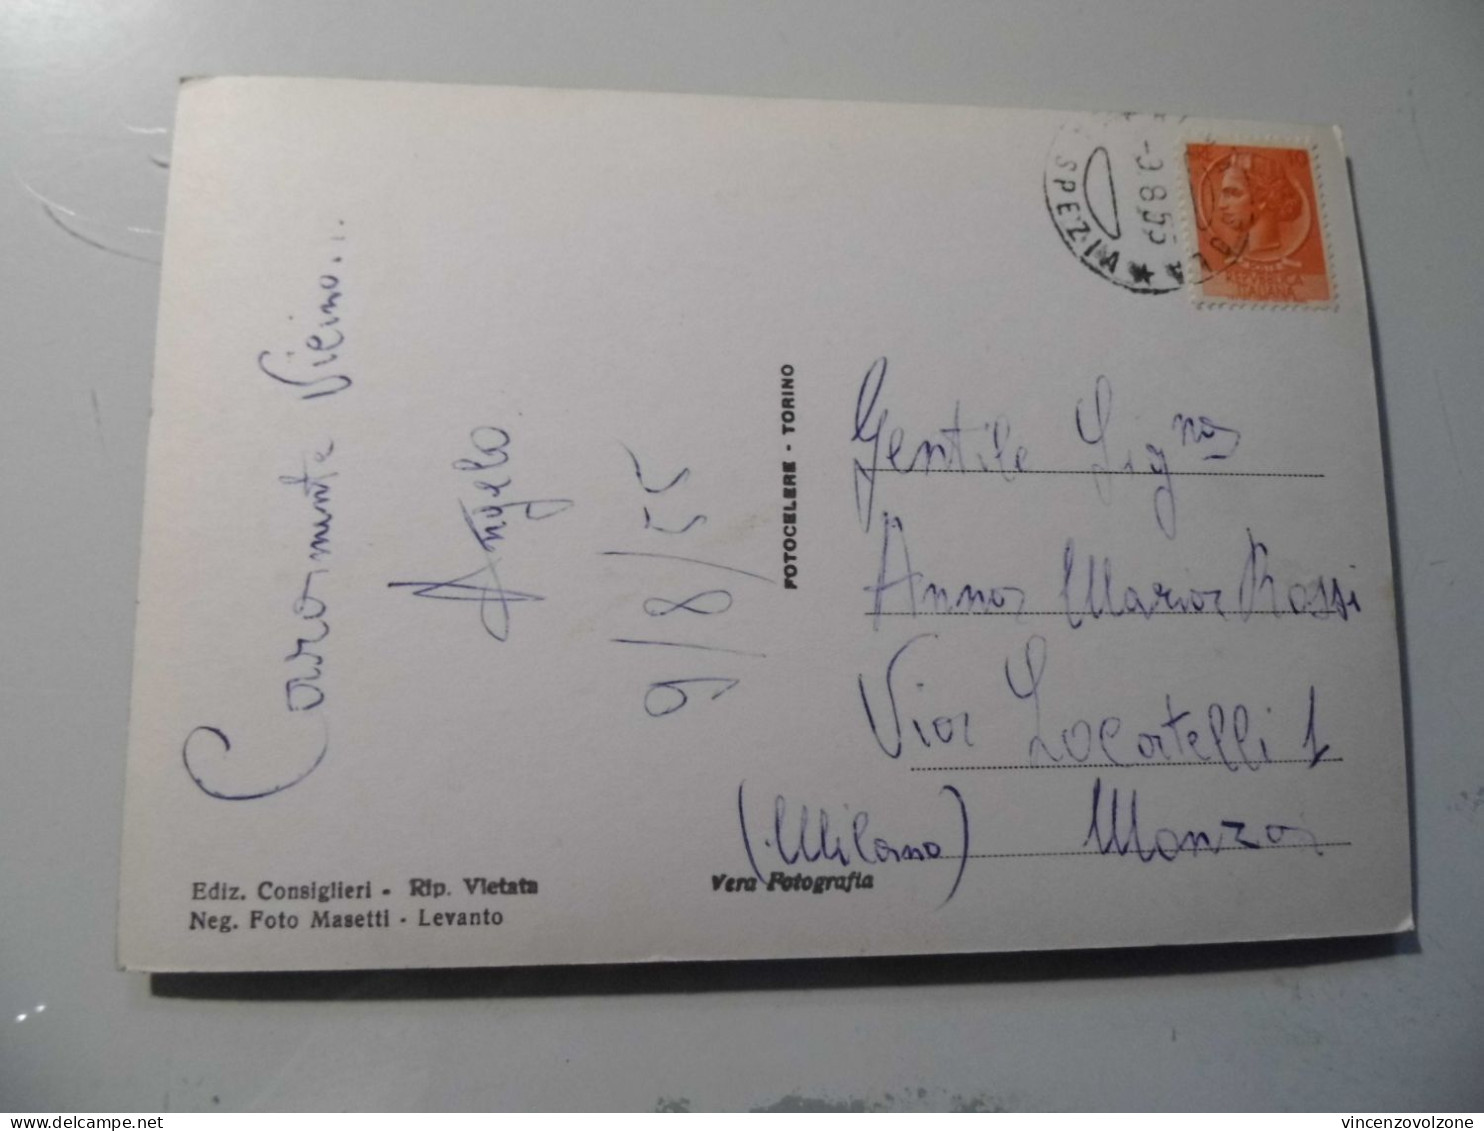 Caramente Vicino...
Angelo
9/8/55
Ediz. Consiglieri - Rip. Vietata
Neg. Foto Masetti - Levanto
Vera Fotografia
FOTOCELERE - TORINO
SPEZIA
9-8 55
10
REPUBBLICA
ITALIANA
Gentile Sig.na
Anna Maria Rossi
Via Locatelli 1
(Milano) Monza
vincenzovolzone